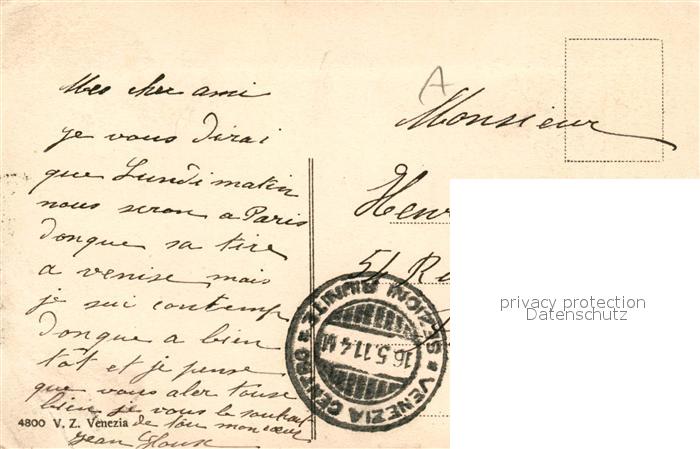 Mes cher ami
je vous dirai
que Lundi matin
nous seron a Paris
donque sa tire
a venise mais
je sui contemp
donque a bien
tôt et je pense
que vous aler touse
bien je vous le souhait
de tou mon cœur
Jean
4800 V. Z. Venezia
A
Monsieur
Henr
51 Ru
VENEZIA CENTRO
SEZIONI RIUNITE
16.5.11.4
privacy protection
Datenschutz